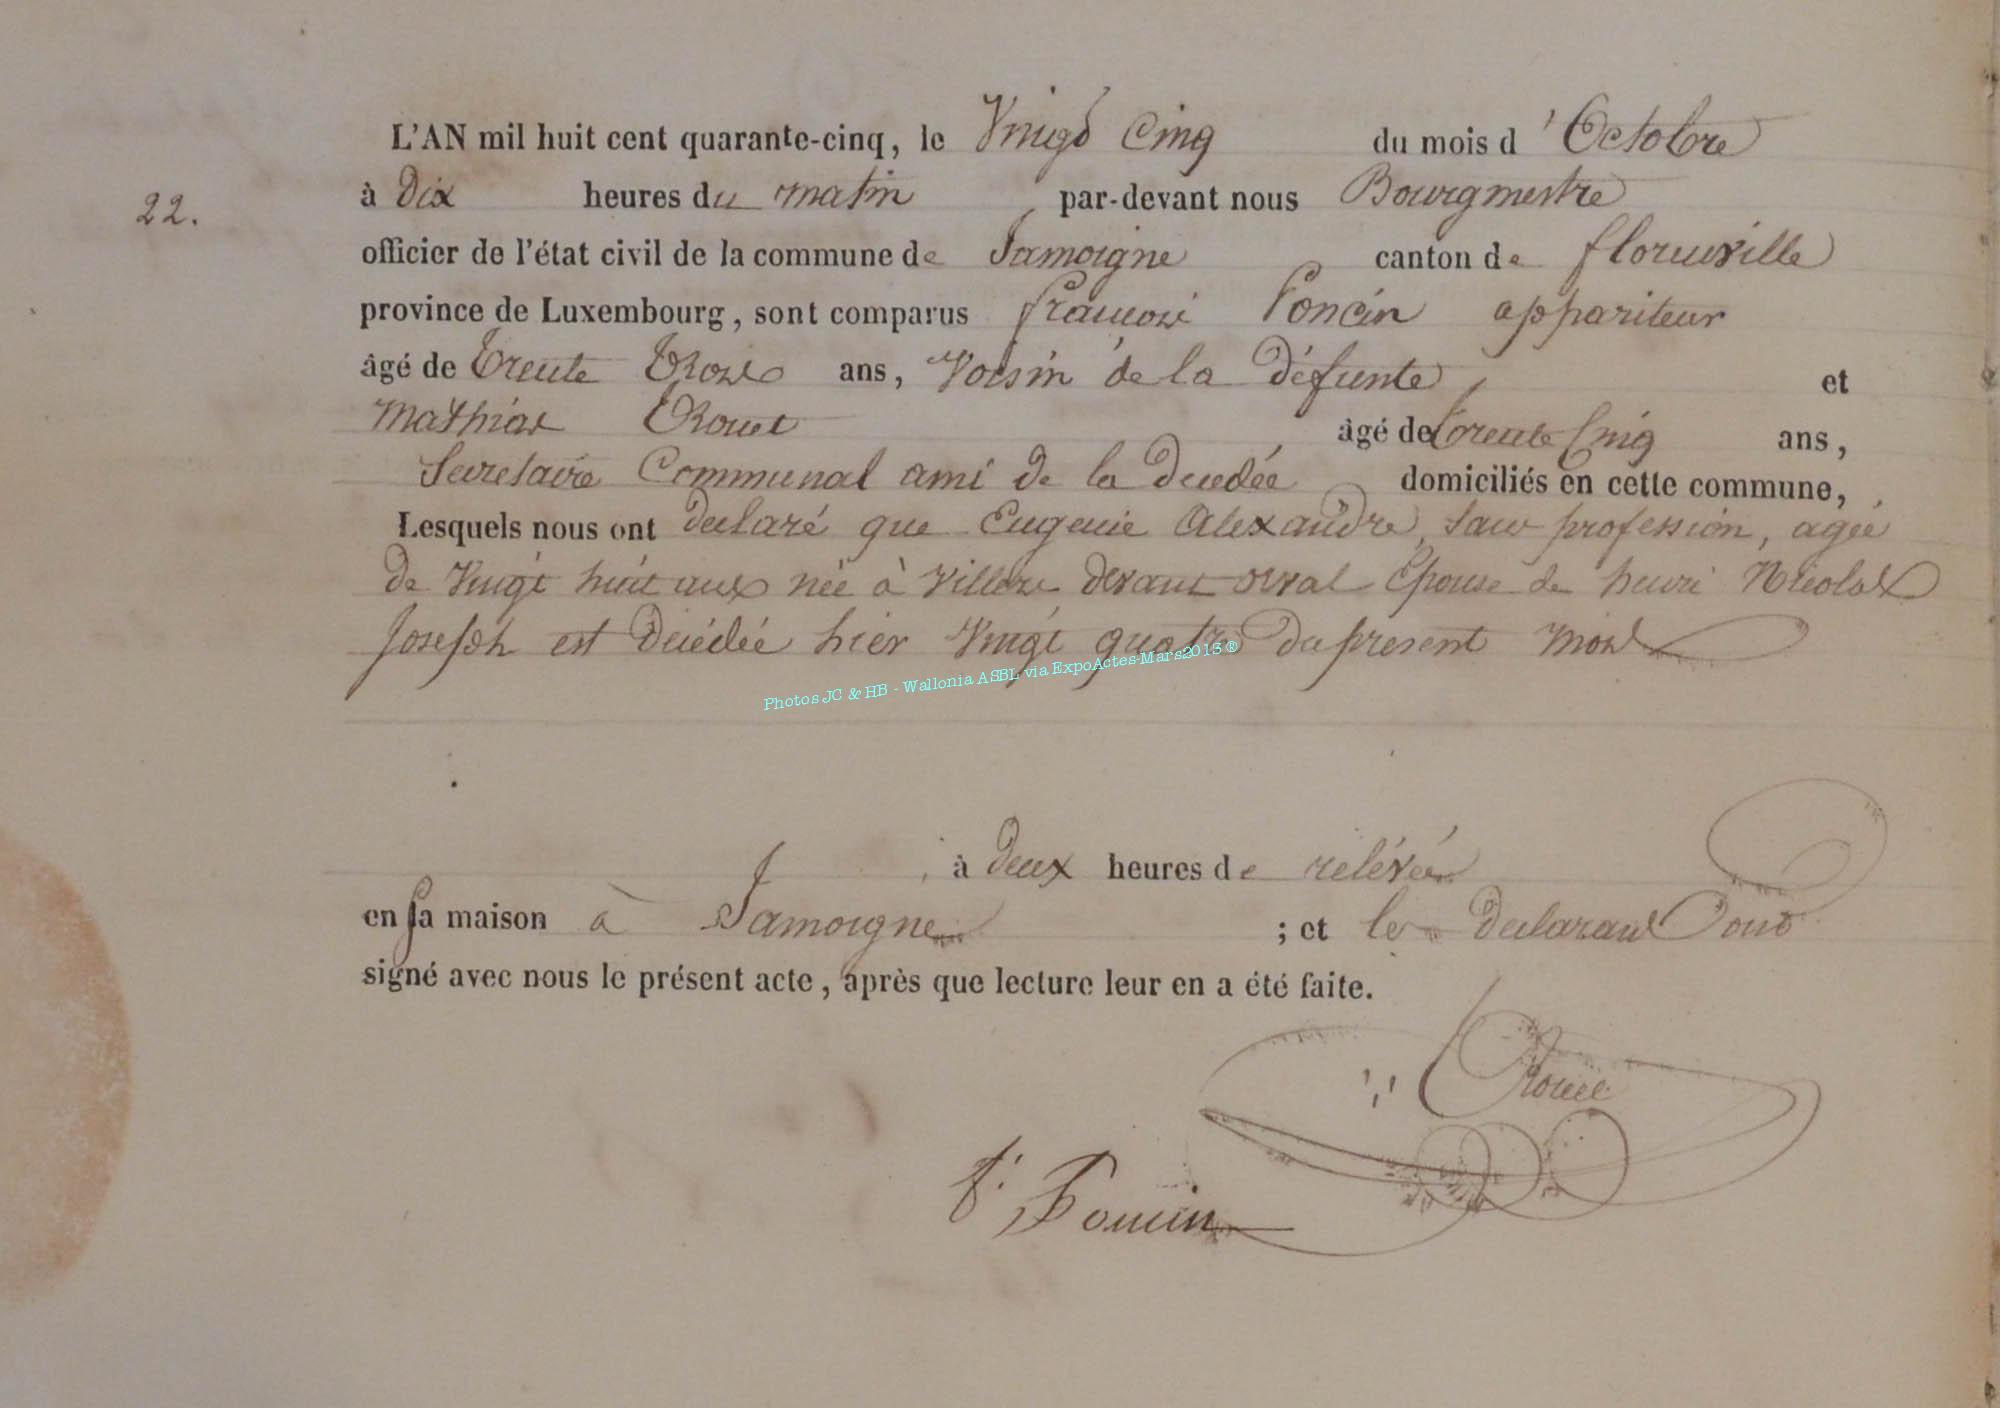 L'AN mil huit cent quarante-cinq, le Vingt Cinq du mois d'Octobre
22.
à Dix heures du matin par-devant nous Bourgmestre
officier de l'état civil de la commune de Jamoigne canton de florenville
province de Luxembourg, sont comparus françois Poncin appariteur
âgé de Trente Trois ans, Voisin de la Défunte et
Mathias âgé de Trente Cinq ans,
Secretaire Communal ami de la Decedée domiciliés en cette commune,
Lesquels nous ont declaré que Eugenie Alexandre, sans profession, agée
de Vingt huit ans née à Villers devant orval Epouse de henri Nicolas
Joseph est Décédée hier Vingt quatre du present mois
Photos JC & HB - Wallonia ASBL via ExpoActes-Mars2013 ®
à deux heures de relévée
en sa maison à Jamoigne ; et les declarans ont
signé avec nous le présent acte, après que lecture leur en a été faite.
f. Poncin